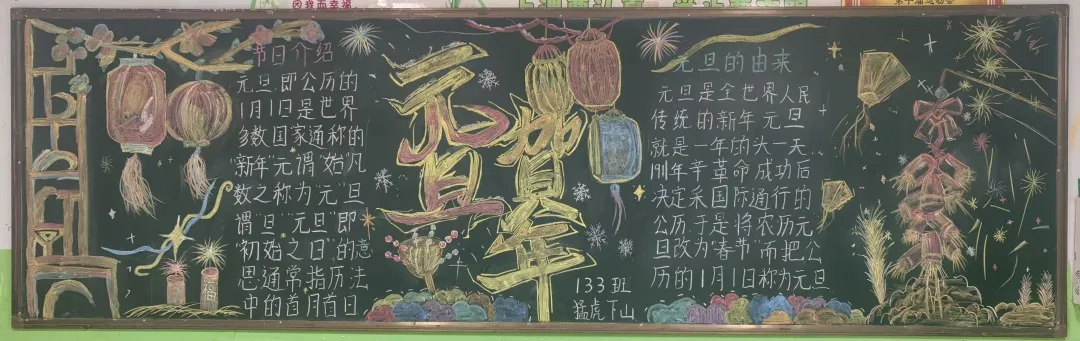 因我而幸福
节日介绍
元旦,即公历的
1月1日是世界
多数国家通称的
"新年"元谓"始"凡
数之称为"元""旦
谓"旦""元旦"即
"初始之日"的意
思通常指历法
中的首月首日
元旦
福
133班
猛虎下山
元旦的由来
元旦是全世界人民
传统的新年元旦
就是一年的头一天
1911年辛革命成功后
决定采国际通行的
公历于是将农历元
旦改为"春节"而把公
历的1月1日称为元旦